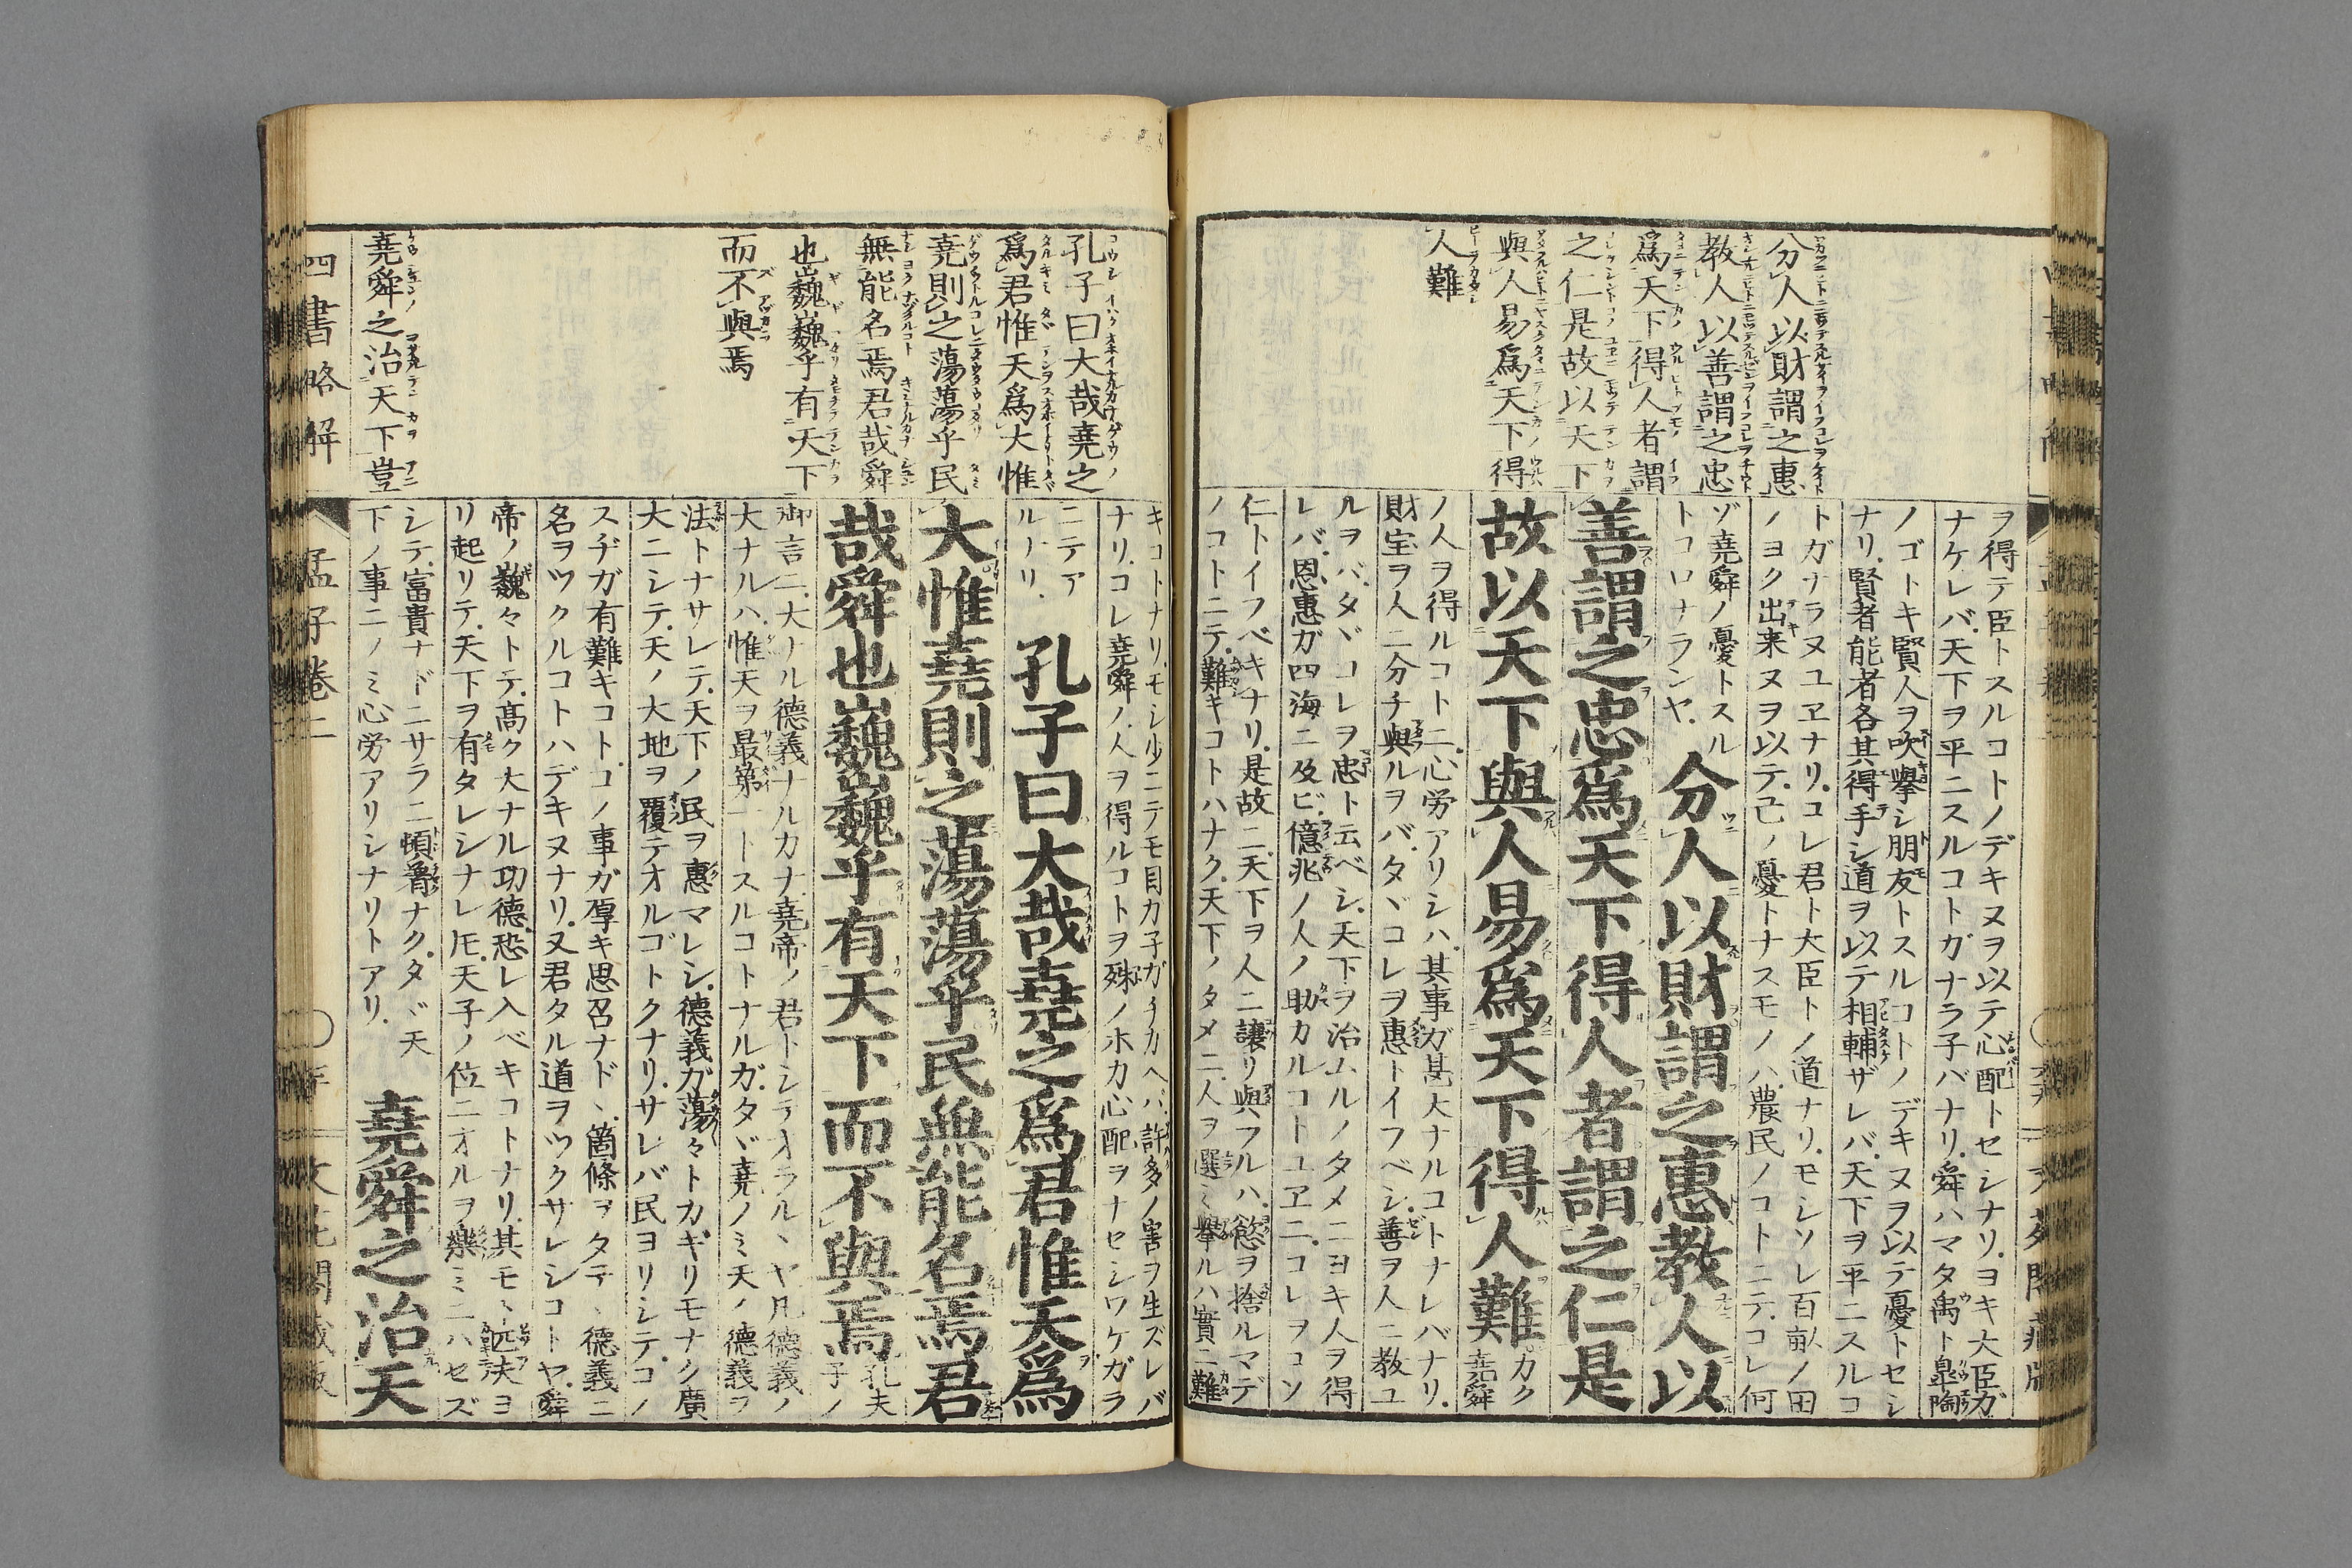 分人以財謂之惠
教人以善謂之忠
爲天下得人者謂
之仁是故以天下
與人易爲天下得
人難
ヲ得テ臣トスルコトノデキヌヲ以テ心配トセシナリ.ヨキ大臣ガ
ナケレバ.天下ヲ平ニスルコトガナラ子バナリ.舜ハマタ禹ト皐陶
ノゴトキ賢人ヲ吹擧シ朋友トスルコトノデキヌヲ以テ憂トセシ
ナリ.賢者能者各其得手シ道ヲ以テ相輔ザレバ.天下ヲ平ニスルコ
トガナラヌユヱナリ.コレ君ト大臣トノ道ナリ.モシソレ百畝ノ田
ノヨク出来ヌヲ以テ.己ノ憂トナスモノハ.農民ノコトニテ.コレ何
ゾ堯舜ノ憂トスル
トコロナランヤ.
分人以財謂之惠教人以
善謂之忠爲天下得人者謂之仁是
故以天下與人易爲天下得人難
カク
堯舜
ノ人ヲ得ルコトニ.心労アリシハ.其事ガ甚大ナルコトナレバナリ.
財宝ヲ人ニ分チ與ルヲバ.タヾコレヲ惠トイフベシ.善ヲ人ニ教ユ
ルヲバ.タヾコレヲ忠ト云ベシ.天下ヲ治ムルノタメニヨキ人ヲ得
レバ.恩惠ガ四海ニ及ビ.億兆ノ人ノ助カルコトユヱニ.コレヲコソ
仁トイフベキナリ.是故ニ天下ヲ人ニ讓リ與フルハ.慾ヲ捨ルマデ
ノコトニテ.難キコトハナク.天下ノタメニ人ヲ選ミ擧ルハ實ニ難
孔子曰大哉堯之
爲君惟天爲大惟
堯則之蕩蕩乎民
無能名焉君哉舜
也巍巍乎有天下
而不與焉
堯舜之治天下豈
キコトナリ.モシ少ニテモ目カ子ガチガヘバ.許多ノ害ヲ生ズレバ
ナリ.コレ堯舜ノ.人ヲ得ルコトヲ殊ノホカ心配ヲナセシワケガラ
ニテア
ルナリ.
孔子曰大哉堯之爲君惟天爲
大惟堯則之蕩蕩乎民無能名焉君
哉舜也巍巍乎有天下而不與焉
孔夫
子ノ
御言ニ.大ナル德義ナルカナ.堯帝ノ君トシテオラルヽヤ.凡德義ノ
大ナルハ.惟天ヲ最第一トスルコトナルガ.タヾ堯ノミ天ノ德義ヲ
法トナサレテ.天下ノ民ヲ惠マレシ.德義ガ蕩々トカギリモナク廣
大ニシテ.天ノ大地ヲ覆テオルゴトクナリ.サレバ民ヨリシテ.コノ
スヂガ有難キコト.コノ事ガ厚キ思召ナドヽ.箇條ヲタテヽ德義ニ
名ヲツクルコトハデキヌナリ.又君タル道ヲツクサレシコトヤ.舜
帝ノ巍々トテ.高ク大ナル功德.恐レ入ベキコトナリ.其モト匹夫ヨ
リ起リテ.天下ヲ有タレシナレ𪜈.天子ノ位ニオルヲ樂ミニハセズ
シテ.富貴ナドニサラニ頓着ナク.タヾ天
下ノ事ニノミ心労アリシナリトアリ.
堯舜之治天
四書略解
孟子卷二